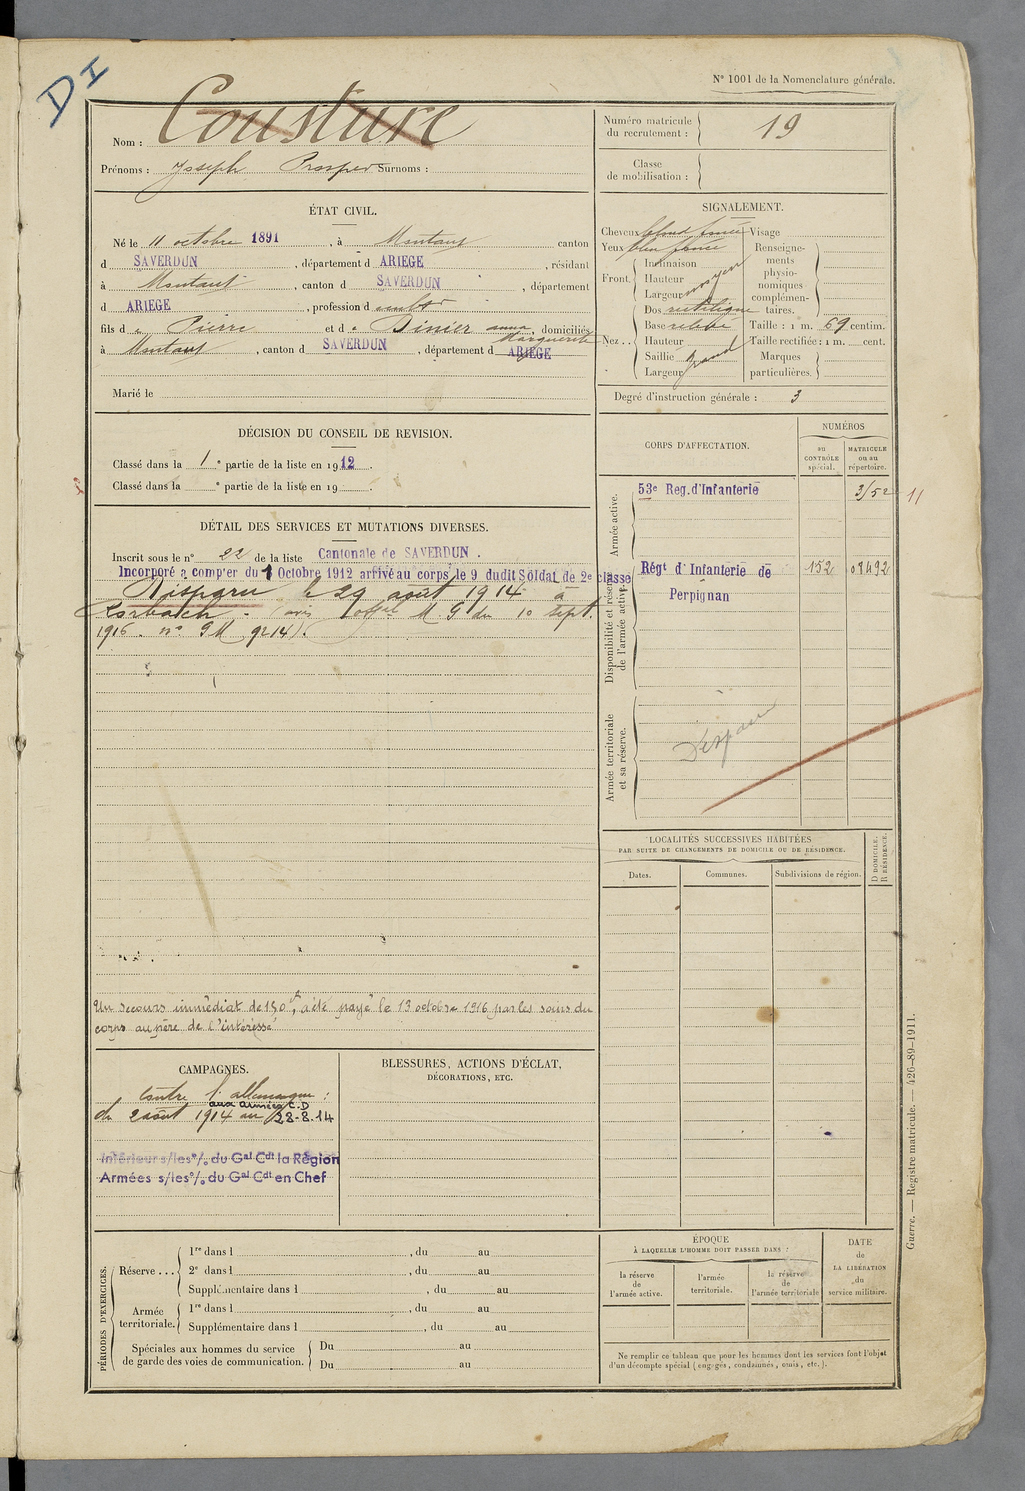 DI
N° 1001 de la Nomenclature générale.
Nom : Cousture
Prénoms : Joseph Prosper Surnoms :
Numéro matricule du recrutement : 19
Classe de mobilisation :
ÉTAT CIVIL.
Né le 11 octobre 1891, à Montaut canton
d SAVERDUN, département d ARIEGE, résidant
à Montaut, canton d SAVERDUN, département
d ARIEGE, profession d
fils d e Pierre et d e Dinier anna Marguerite, domiciliés
à Montaut, canton d SAVERDUN, département d ARIEGE
Marié le
SIGNALEMENT.
Cheveux blond foncé Visage
Yeux bleu foncé Renseignements physionomiques complémentaires.
Front. Inclinaison
Hauteur moyen
Largeur
Nez.. Dos rectiligne
Base relevé Taille : 1 m. 69 centim.
Hauteur Taille rectifiée : 1 m. cent.
Saillie grand Marques particulières.
Largeur
Degré d'instruction générale : 3
DÉCISION DU CONSEIL DE REVISION.
Classé dans la 1e partie de la liste en 1912.
Classé dans la e partie de la liste en 19 .
DÉTAIL DES SERVICES ET MUTATIONS DIVERSES.
Inscrit sous le n° 22 de la liste Cantonale de SAVERDUN.
Incorporé a compter du 1 Octobre 1912 arrivé au corps le 9 dudit Soldat de 2e classe
Disparu le 29 août 1914 à
(avis offiel M. G du 10 sept.
1916. n° GM 9214).
Un secours immédiat de 150f, a été payé le 13 octobre 1916 par les soins du
corps au père de l'intéressé
CORPS D'AFFECTATION.
NUMÉROS
au CONTRÔLE spécial.
MATRICULE ou au répertoire.
Armée active.
53e Reg. d'Infanterie 3152 11
Disponibilité et réserve de l'armée active.
Régt d'Infanterie de Perpignan 152 08492
Armée territoriale et sa réserve.
Disparu
LOCALITÉS SUCCESSIVES HABITÉES
PAR SUITE DE CHANGEMENTS DE DOMICILE OU DE RÉSIDENCE.
Dates.
Communes.
Subdivisions de région.
D DOMICILE.
R RÉSIDENCE.
CAMPAGNES.
Contre l'allemagne :
aux armées C.D
du 2 août 1914 au 28-8-14
Intérieur s/les o/o du Gal Cdt la Région
Armées s/les o/o du Gal Cdt en Chef
BLESSURES, ACTIONS D'ÉCLAT,
DÉCORATIONS, ETC.
PÉRIODES D'EXERCICES.
Réserve ...
1re dans l , du au
2e dans l , du au
Supplémentaire dans l , du au
Armée territoriale.
1re dans l , du au
Supplémentaire dans l , du au
Spéciales aux hommes du service
de garde des voies de communication.
Du au
Du au
ÉPOQUE
À LAQUELLE L'HOMME DOIT PASSER DANS :
la réserve de l'armée active.
l'armée territoriale.
la réserve de l'armée territoriale
DATE de LA LIBÉRATION du service militaire.
Ne remplir ce tableau que pour les hommes dont les services font l'objet
d'un décompte spécial (engagés, condamnés, omis, etc.).
Guerre. — Registre matricule. — 426-89-1911.